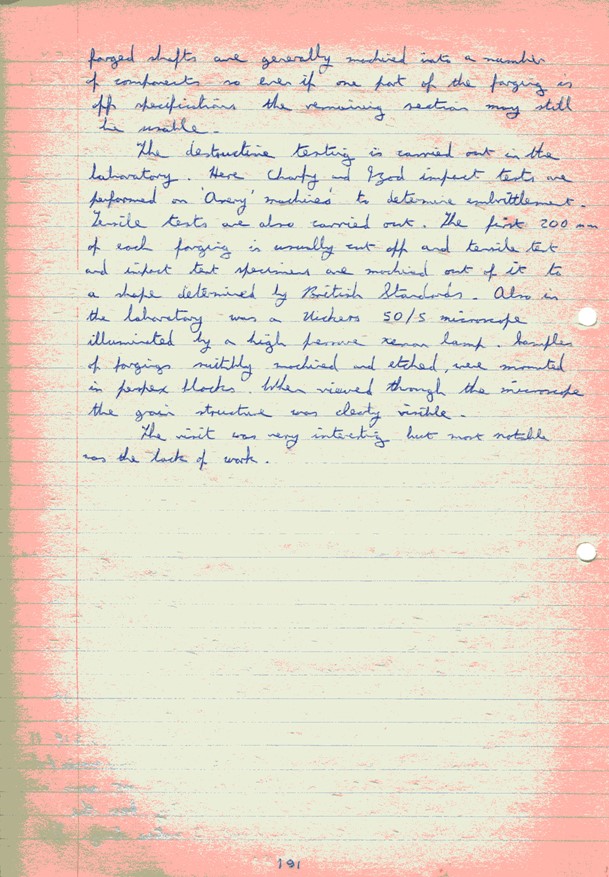 forged shafts are generally machined into a number
of components so even if one part of the forging is
off specifications the remaining section may still
be usable.
The destructive testing is carried out in the
laboratory. Here Charpy and Izod impact tests are
performed on 'Avery' machines to determine embrittlement.
Tensile tests are also carried out. The first 200 mm
of each forging is usually cut off and tensile test
and impact test specimens are machined out of it to
a shape determined by British Standards. Also in
the laboratory was a Vickers 50/5 microscope
illuminated by a high pressure xenon lamp. Samples
of forgings suitably machined and etched, were mounted
in perspex blocks. When viewed through the microscope
the grain structure was clearly visible.
The visit was very interesting but most notable
was the lack of work.
191